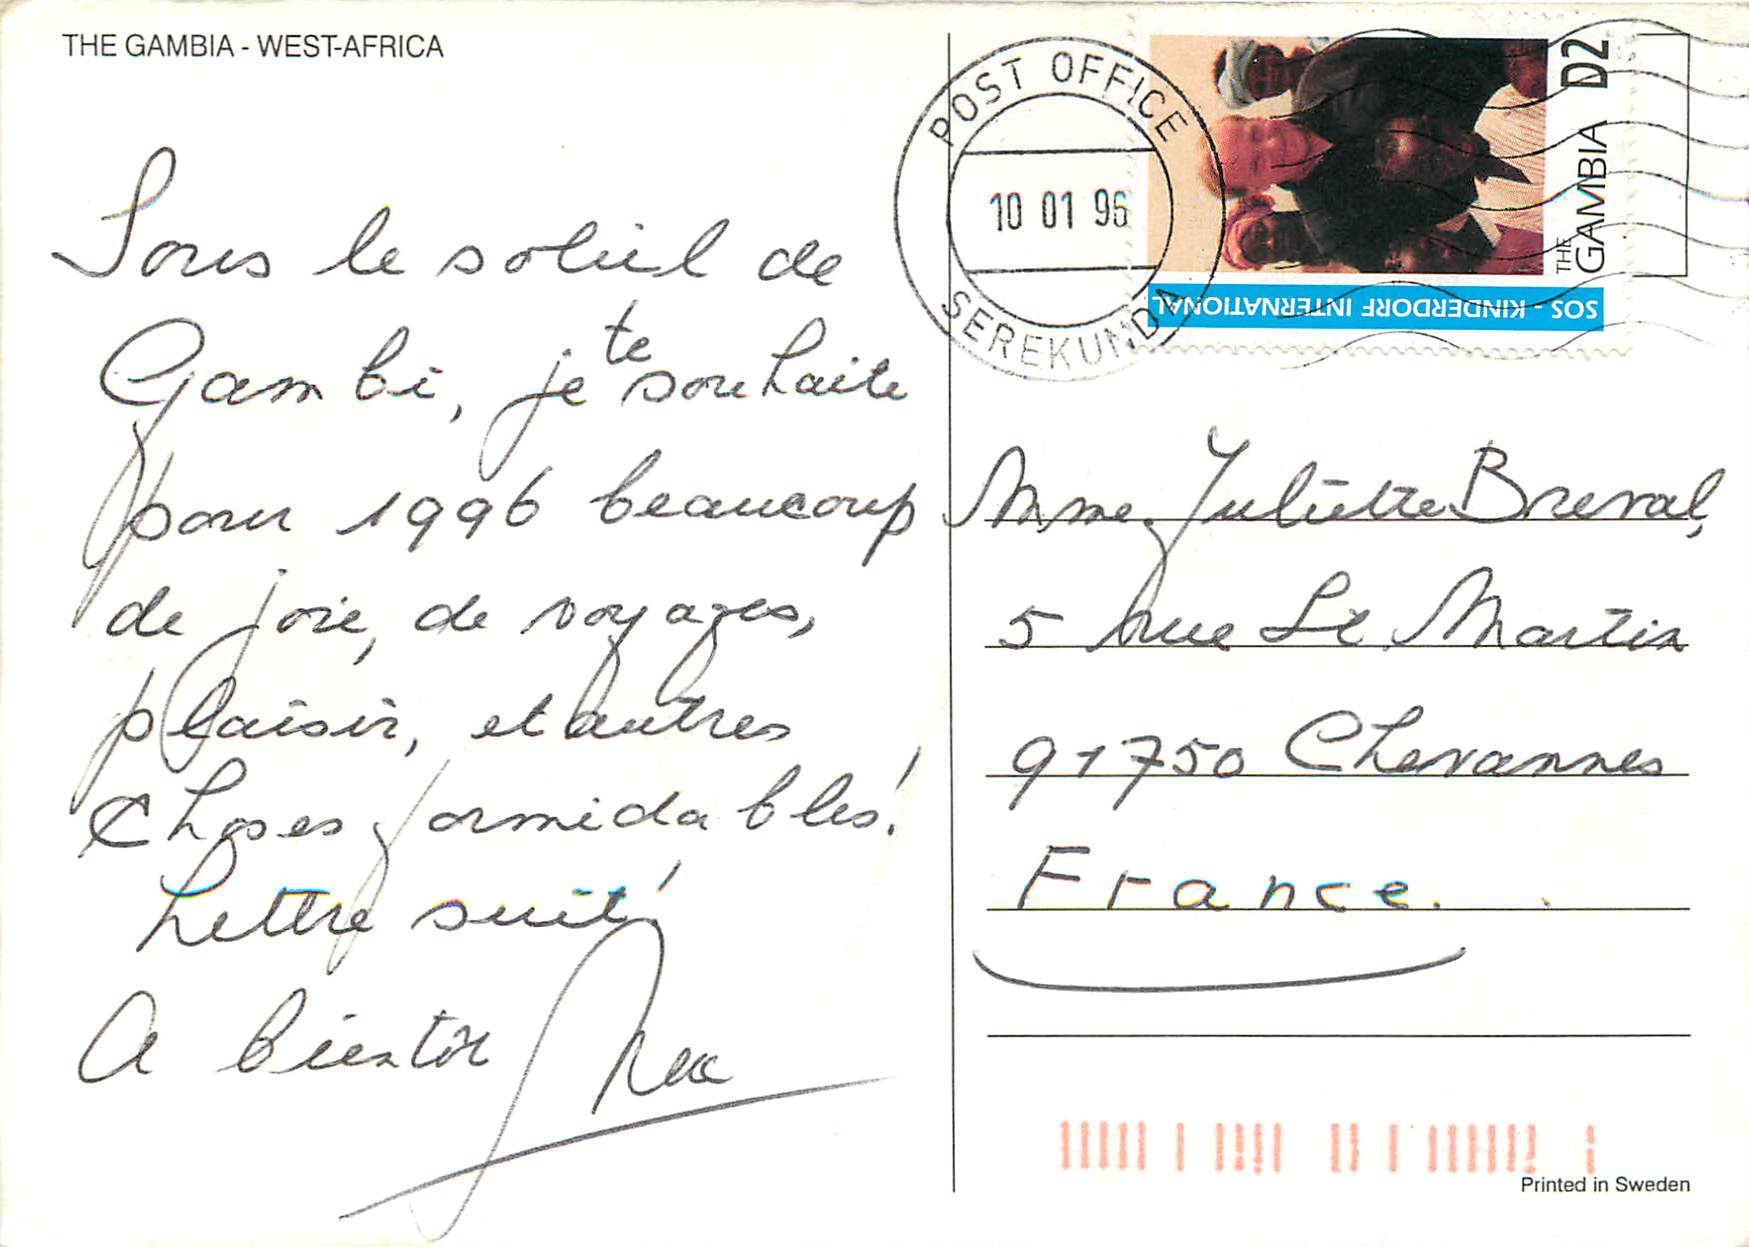 THE GAMBIA - WEST-AFRICA
Sous le soleil de
Gambi, je te souhaite
pour 1996 beaucoup
de joie, de voyages,
plaisir, et autres
choses formidables!
Lettre suit!
A bientôt
POST OFFICE
10 01 96
SEREKUNDA
THE GAMBIA D2
SOS - KINDERDORF INTERNATIONAL
Mme Juliette Breval,
5 rue St Martin
91750 Chevannes
France.
Printed in Sweden